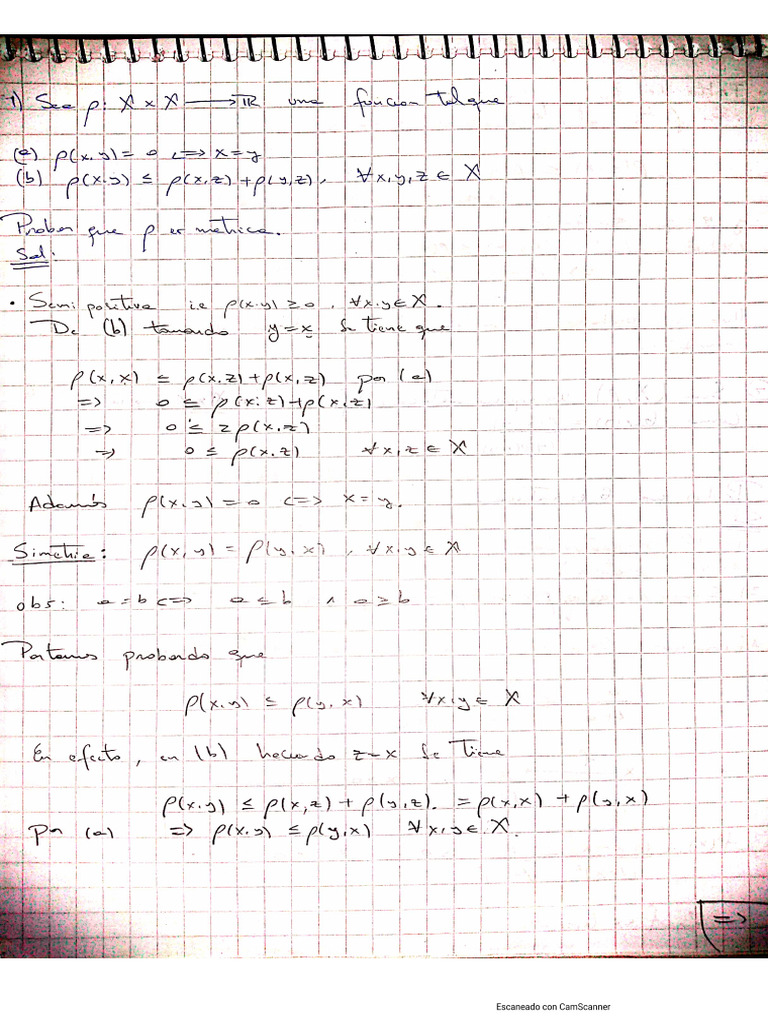 1) Sea ρ: X × X ⟶ ℝ una funcion tal que
(a) ρ(x,y) = 0 <=> x = y
(b) ρ(x,y) ≤ ρ(x,z) + ρ(y,z), ∀x,y,z ∈ X
Probar que ρ es metrica.
Sol:
• Semi positiva i.e ρ(x,y) ≥ 0, ∀x,y ∈ X.
De (b) tomando y = x se tiene que
ρ(x,x) ≤ ρ(x,z) + ρ(x,z) por (a)
=> 0 ≤ ρ(x,z) + ρ(x,z)
=> 0 ≤ 2ρ(x,z)
=> 0 ≤ ρ(x,z) ∀x,z ∈ X
Además ρ(x,y) = 0 <=> x = y.
Simetria: ρ(x,y) = ρ(y,x), ∀x,y ∈ X
obs: a = b <=> a ≤ b ∧ a ≥ b
Partamos probando que
ρ(x,y) ≤ ρ(y,x) ∀x,y ∈ X
En efecto, en (b) haciendo z = x se tiene
ρ(x,y) ≤ ρ(x,z) + ρ(y,z). = ρ(x,x) + ρ(y,x)
por (a) => ρ(x,y) ≤ ρ(y,x) ∀x,y ∈ X.
=>
Escaneado con CamScanner